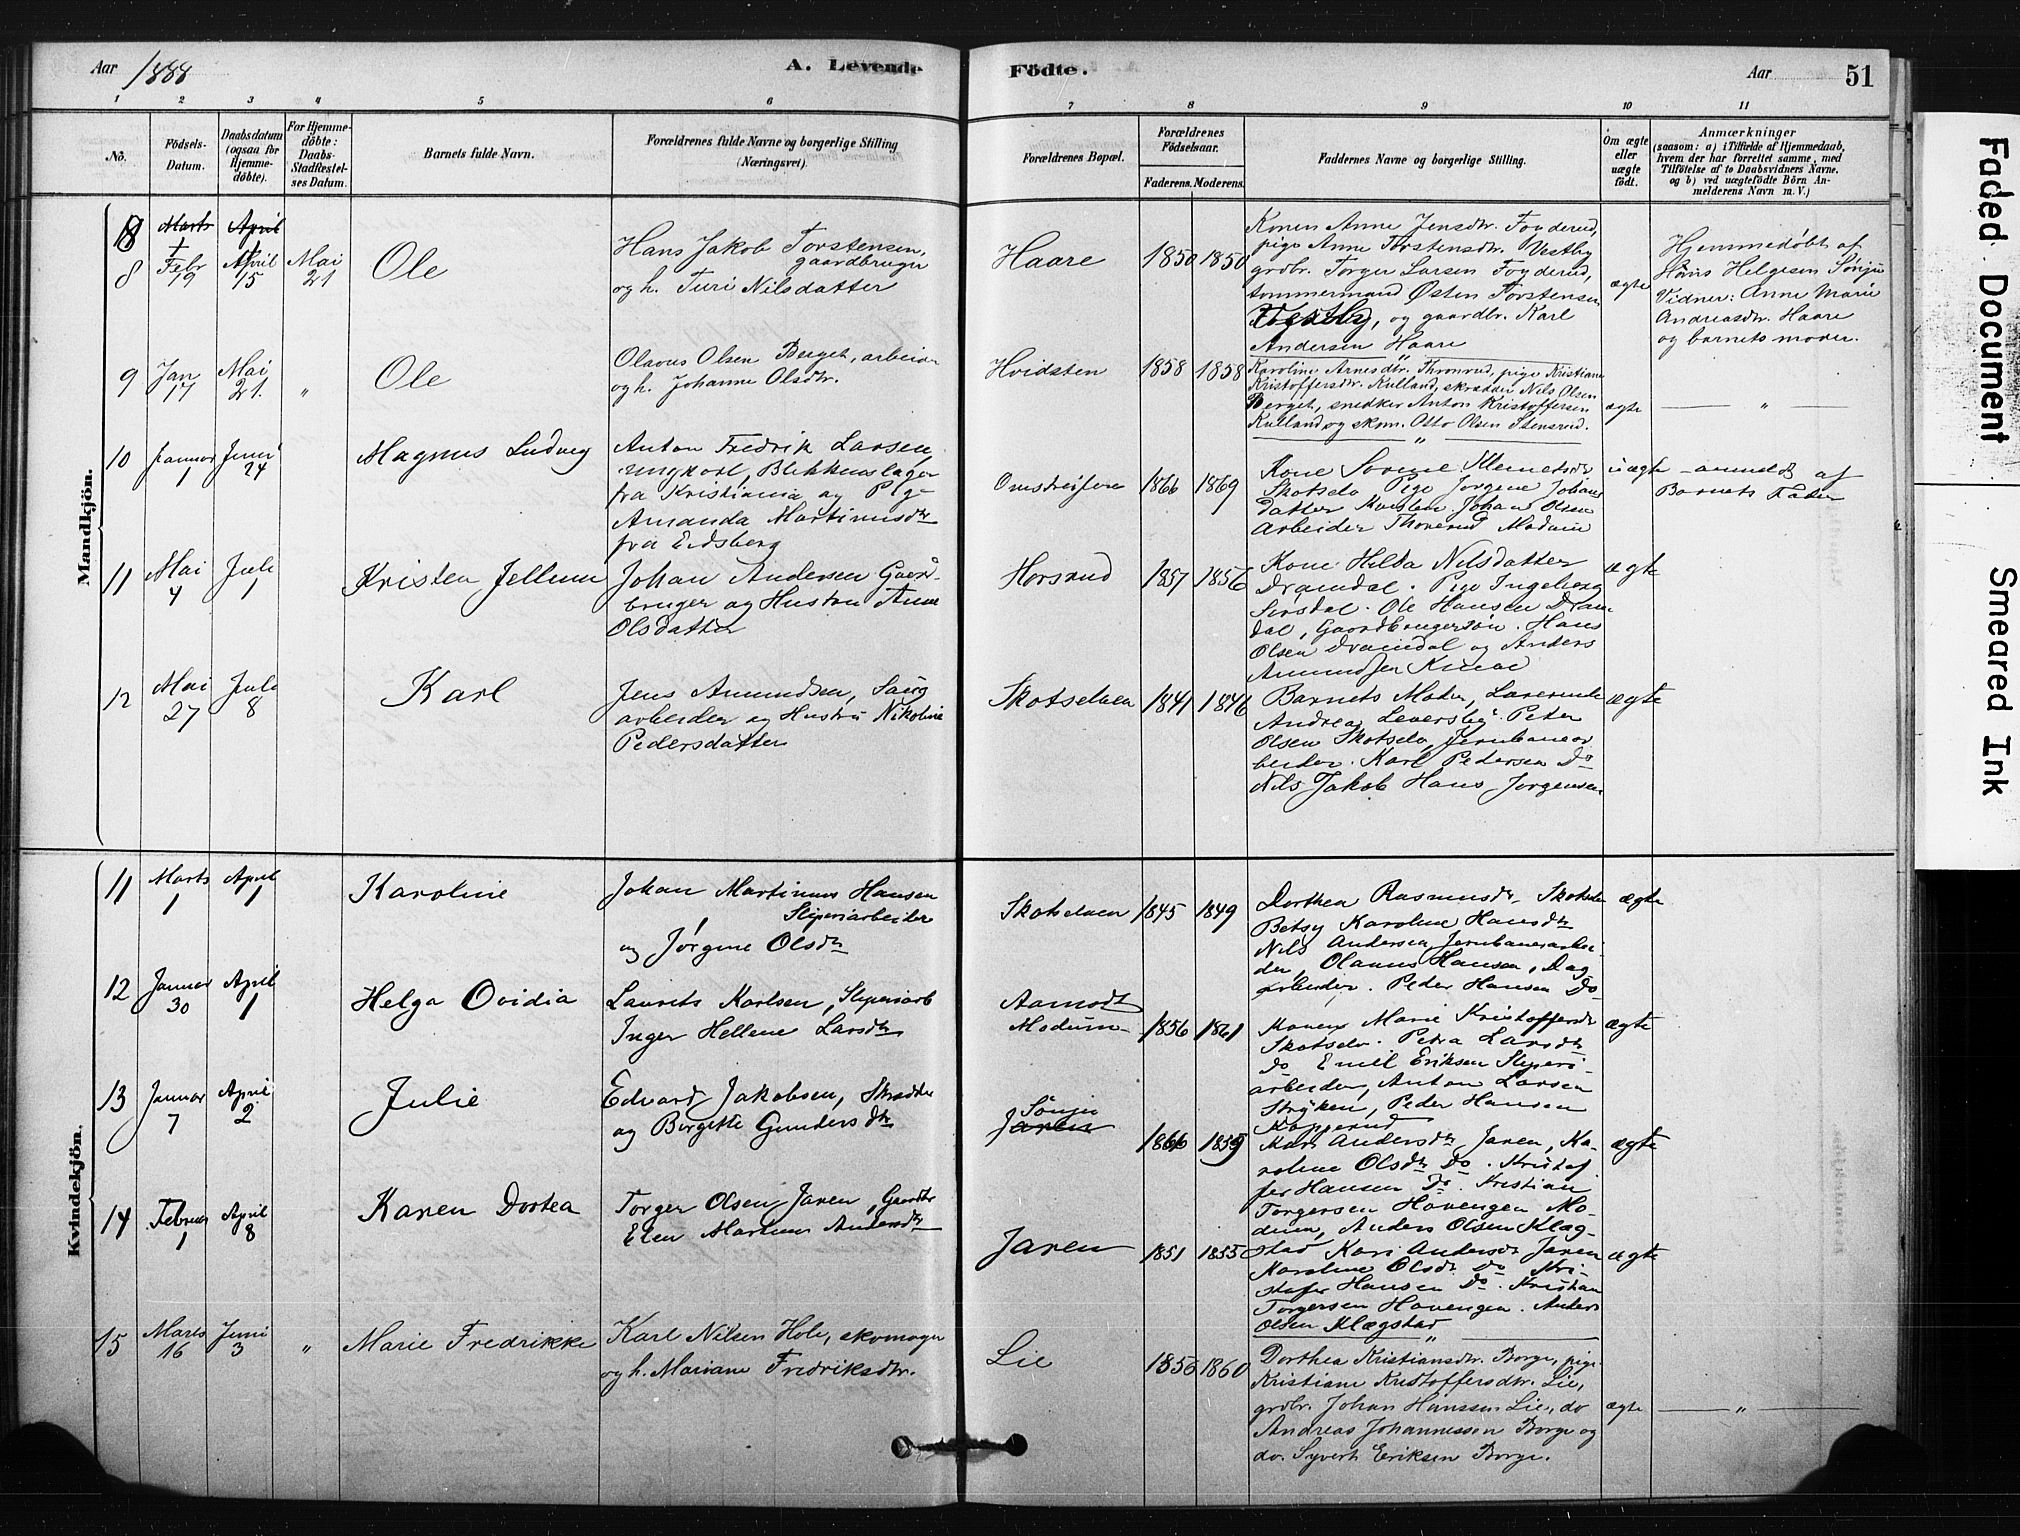 Aar 1888
A. Levende
Födte.
Aar
51
1 2 3 4 5 6 7 8 9 10 11
No.
Födsels-
Datum.
Daabsdatum
(ogsaa for
Hjemme-
döbte).
For Hjemme-
döbte:
Daabs-
Stadfæstel-
ses Datum.
Barnets fulde Navn.
Forældrenes fulde Navne og borgerlige Stilling
(Næringsvei).
Forældrenes Bopæl.
Forældrenes
Födselsaar.
Faderens. Moderens.
Faddernes Navne og borgerlige Stilling.
Om ægte
eller
uægte
födt.
Anmærkninger
(saasom: a) i Tilfælde af Hjemmedaab,
hvem der har forrettet samme, med
Tilföielse af to Daabsvidners Navne,
og b) ved uægtefödte Börn An-
melderens Navn m. V.)
Mandkjön.
8
Febr
19
April
15
Mai
21
Ole
Hans Jakob Torstensen,
gaardbruger
og h. Turi Nilsdatter
Haare
1850 1850
Konen Anne Jensdtr. Foyderud,
pige Anne Torstensdtr. Vestby
grdbr. Torger Larsen Foyderud,
tømmermand Østen Torstensen
Vestby, og gaardbr. Karl
Andersen Haare
ægte
Hjemmedøbt af
Helgesen Sønju
Vidner: Anne Marie
Andreasdtr. Haare
og barnets moder.
9
Jan
17
Mai
21.
"
Ole
Olavus Olsen Berget, arbeider
og h. Johanne Olsdtr.
Hvidsten
1858 1858
Karoline Arnesdtr. Thronrud, pige Kristiane
Kristoffersdtr. Kulland, skrædder Nils Olsen
Berget, snedker Anton Kristoffersen
Kulland og skom. Otto Olsen Stensrud.
ægte
"
10
Januar
1
Juni
24
Magnus Ludvig
Anton Fredrik Larsen
Blikkenslager
fra Kristiania og Pige
Amanda Martinusdtr
fra Eidsberg
1866 1869
Kone Sorine Klemetsdr
Skotselv Pige Jørgine Johans
datter Johan Olsen
Arbeider Modum
uægte
anmeldt af
Barnets Fader
11
Mai
4
Juli
1
Kristen Jellum
Johan Andersen Gaard-
bruger og Hustru Anne
Olsdatter
Horsrud
1857 1856
Kone Hilda Nilsdatter
Dramdal. Pige Ingeborg
Ole Hansen Dram-
dal, Gaardbrugersøn. Hans
Olsen Dramdal og Anders
Amundsen
ægte
12
Mai
27
Juli
8
Karl
Jens Amundsen, Saug
arbeider og Hustru Nikoline
Pedersdatter
Skotselven
1841 1846
Barnets Moder,
Andrea Peter
Olsen Skotselv, Jernbanear
beider. Karl Pedersen Do
Nils Jakob Hans Jørgensen
ægte
Kvindekjön.
11
Marts
1
April
1
Karoline
Johan Martinus Hansen
Sliperiarbeider
og Jørgine Olsdtr
Skotselven
1845 1849
Dorthea Rasmusdr. Skotselv
Betsy Karoline Hansdtr
Nils Andersen Jernbanearbei-
der, Olaus Hansen, Dag
arbeider. Peder Hansen Do
ægte
12
Januar
30
April
1
Helga Ovidia
Laurits Karlsen, Sliperiarb
Inger Hellene Larsdtr
Aamodt
Modum
1856 1861
Maren Marie Kristoffersdr
Skotselv. Petra Larsdtr
Do Emil Eriksen Sliperi-
arbeider, Anton Larsen
Stryken, Peder Hansen
Kopperud
ægte
13
Januar
7
April
2
Julie
Edvard Jakobsen, Skrædder
og Birgitte Gundersdtr
Sønju
Jaren
1866 1859
Kari Andersdtr Jaren, Ka-
roline Olsdtr Do. Kristof-
fer Hansen Do. Kristian
Torgersen Hovengen Mo-
dum, Anders Olsen Klæg-
stad
ægte
14
Februar
1
April
8
Karen Dortea
Torger Olsen Jaren, Gaardbr
Elen Martine Andersdtr
Jaren
1851 1855
Kari Andersdr Jaren
Karoline Olsdr Do Kri-
stofer Hansen Do. Kristian
Torgersen Hovengen. Anders
Olsen Klægstad
"
ægte
15
Marts
16
Juni
3
"
Marie Fredrikke
Karl Nilsen Hole, skomager
og h. Mariane Fredriksdtr.
Lie
1856 1860
Dorthea Kristiansdtr. Borge, pige
Kristiane Kristoffersdtr. Lie,
grdbr. Johan Hanssen Lie, do
Andreas Johannessen Borge og
do. Syvert Eriksen Borge.
ægte
"
Faded Document
Smeared Ink